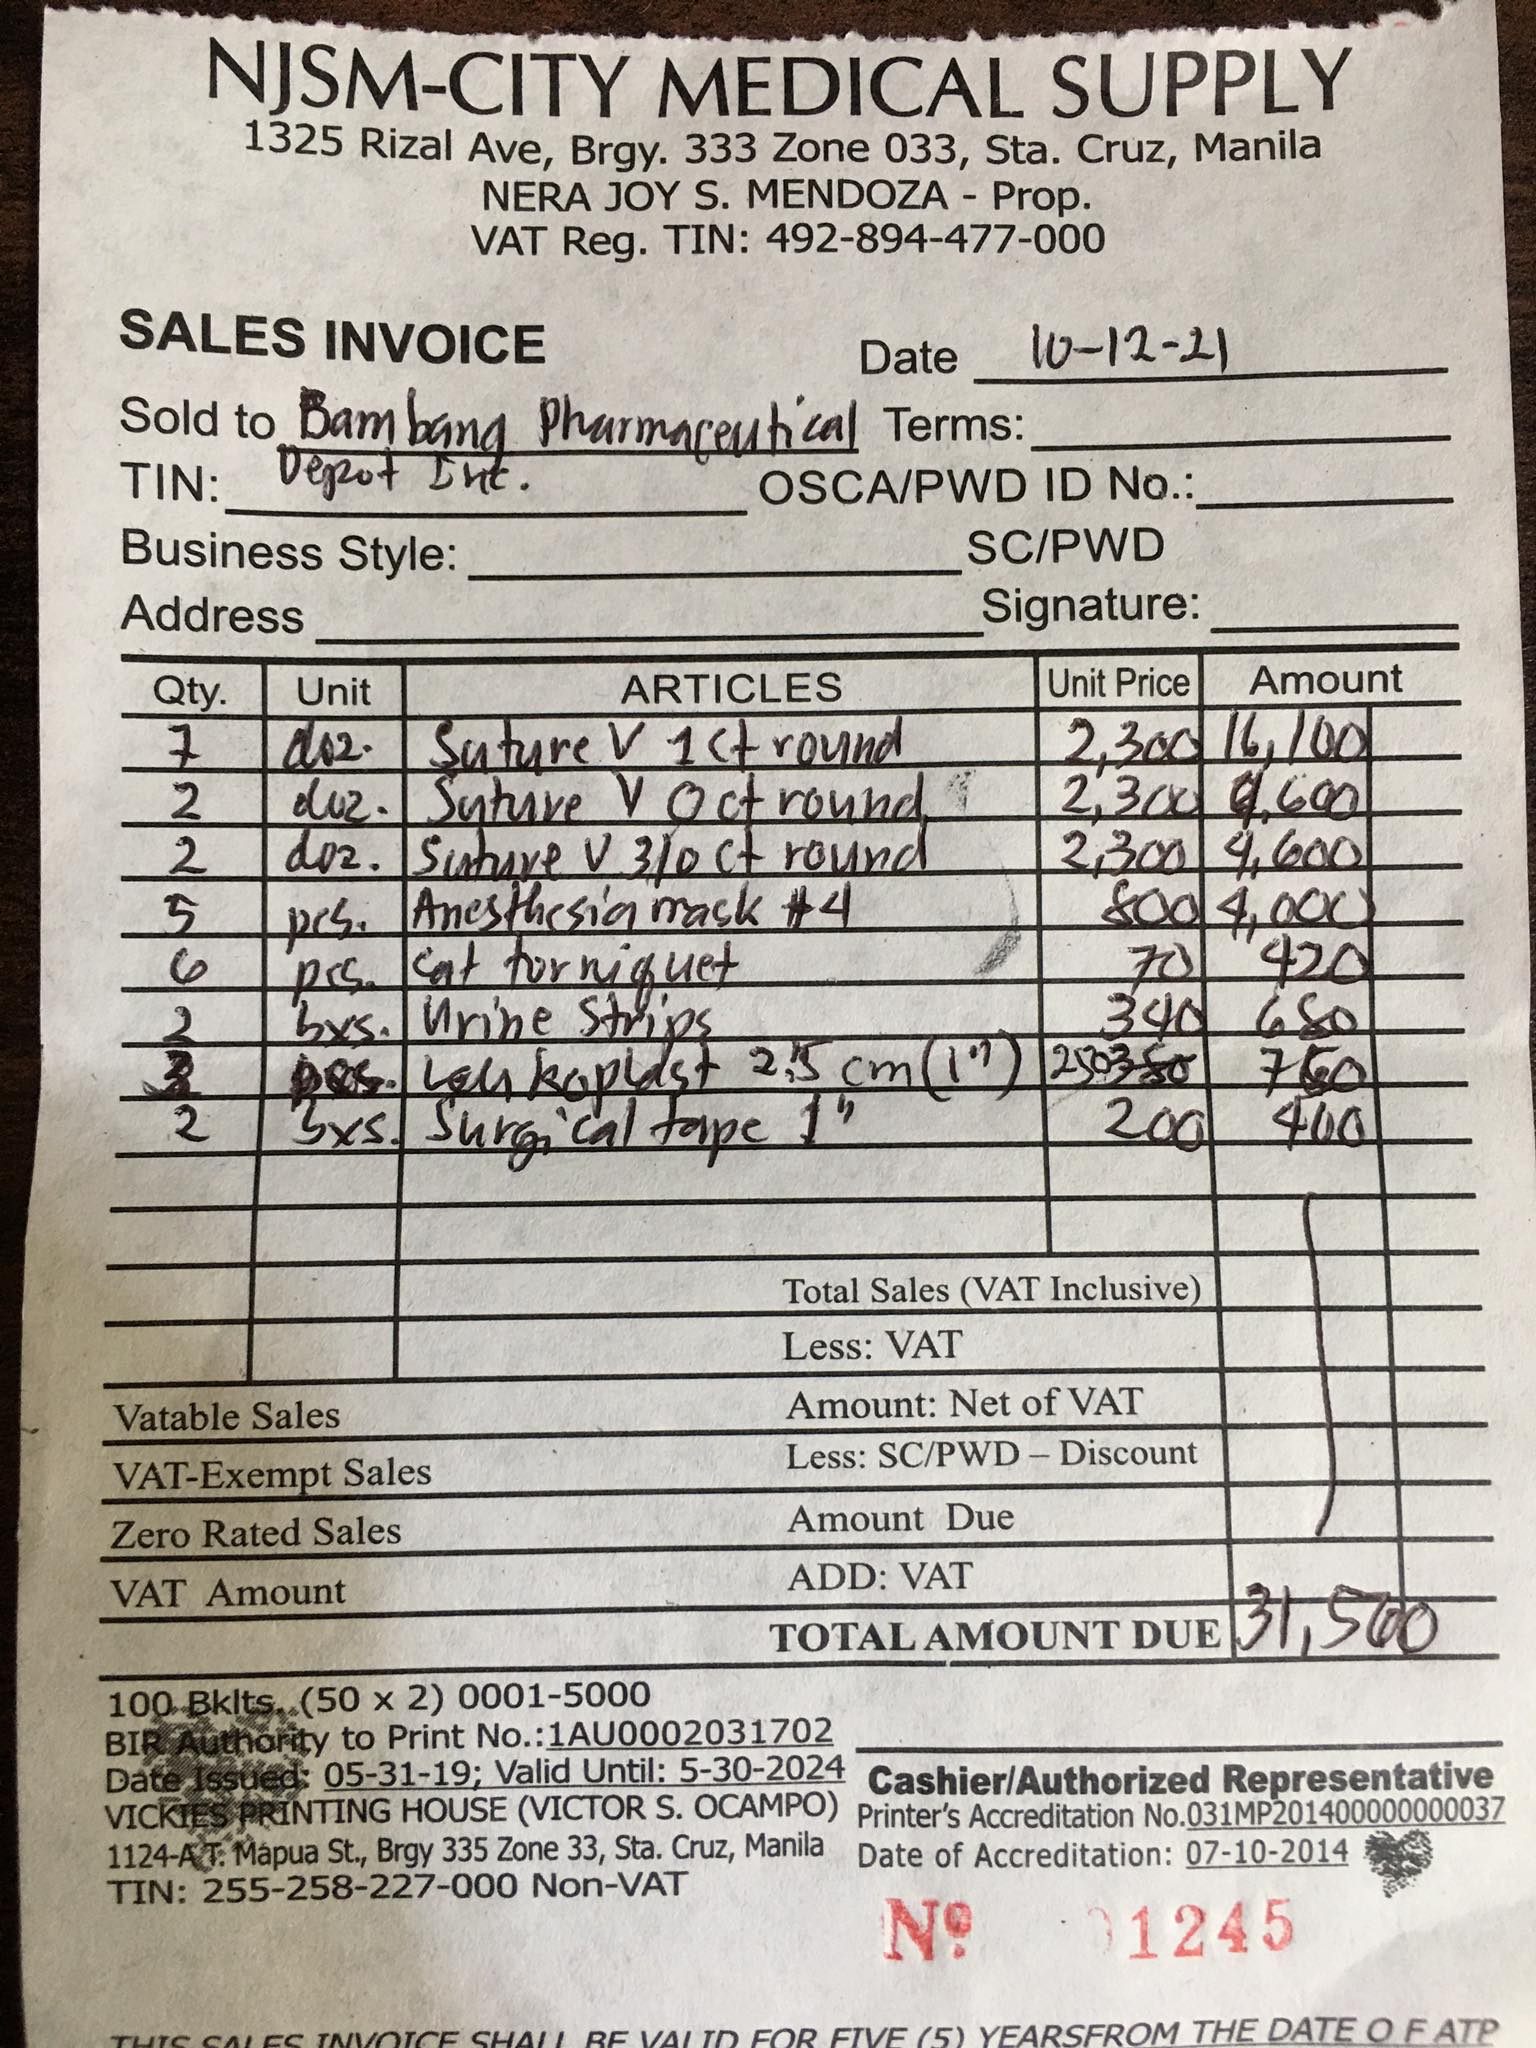 NJSM-CITY MEDICAL SUPPLY
1325 Rizal Ave, Brgy. 333 Zone 033, Sta. Cruz, Manila
NERA JOY S. MENDOZA - Prop.
VAT Reg. TIN: 492-894-477-000
SALES INVOICE
Date 10-12-21
Sold to Bambang Pharmaceutical Terms:
TIN: Depot Inc. OSCA/PWD ID No.:
Business Style: SC/PWD
Address Signature:
Qty. Unit ARTICLES Unit Price Amount
7 doz. Suture V 1 ct round 2,300 16,100
2 doz. Suture V 0 ct round 2,300 4,600
2 doz. Suture V 3/0 ct round 2,300 4,600
5 pcs. Anesthesia mask #4 800 4,000
6 pcs. Cat torniquet 70 420
2 bxs. Urine Strips 340 680
3 pcs. Leukoplast 2.5 cm (1") 250 750
2 bxs. Surgical tape 1" 200 400
Total Sales (VAT Inclusive)
Less: VAT
Vatable Sales Amount: Net of VAT
VAT-Exempt Sales Less: SC/PWD – Discount
Zero Rated Sales Amount Due
VAT Amount ADD: VAT
TOTAL AMOUNT DUE 31,560
100 Bklts. (50 x 2) 0001-5000
BIR Authority to Print No.:1AU0002031702
Date Issued: 05-31-19; Valid Until: 5-30-2024
VICKIES PRINTING HOUSE (VICTOR S. OCAMPO)
1124-A T. Mapua St., Brgy 335 Zone 33, Sta. Cruz, Manila
TIN: 255-258-227-000 Non-VAT
Cashier/Authorized Representative
Printer's Accreditation No.031MP201400000000037
Date of Accreditation: 07-10-2014
Nº 1245
THIS SALES INVOICE SHALL BE VALID FOR FIVE (5) YEARSFROM THE DATE O F ATP